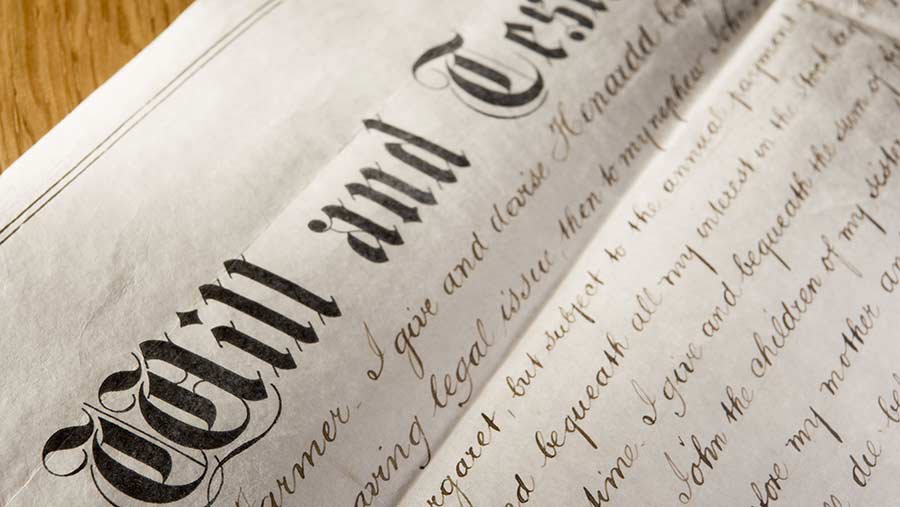 Will and Tes
armer. I give and devise Hinardd
aving legal issue, then to my nephew John
rgaret, but subject to the annual payment
d bequeath all my interest in the Stock
time. I give and bequeath the sum of
John the children of my sister
fore my mother an
die be